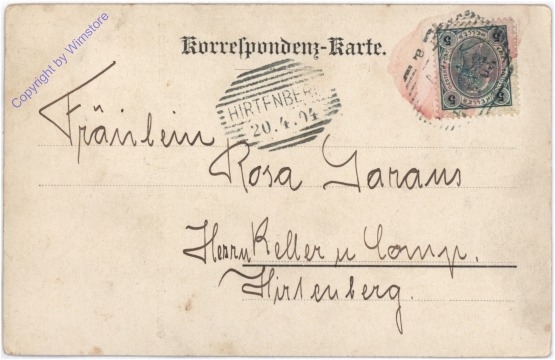 Copyright by Wimstore
Korrespondenz-Karte.
5 5
HIRTENBERG
20.4.04
Fräulein
Rosa Garaus
Herrn Keller u Comp.
Hirtenberg.